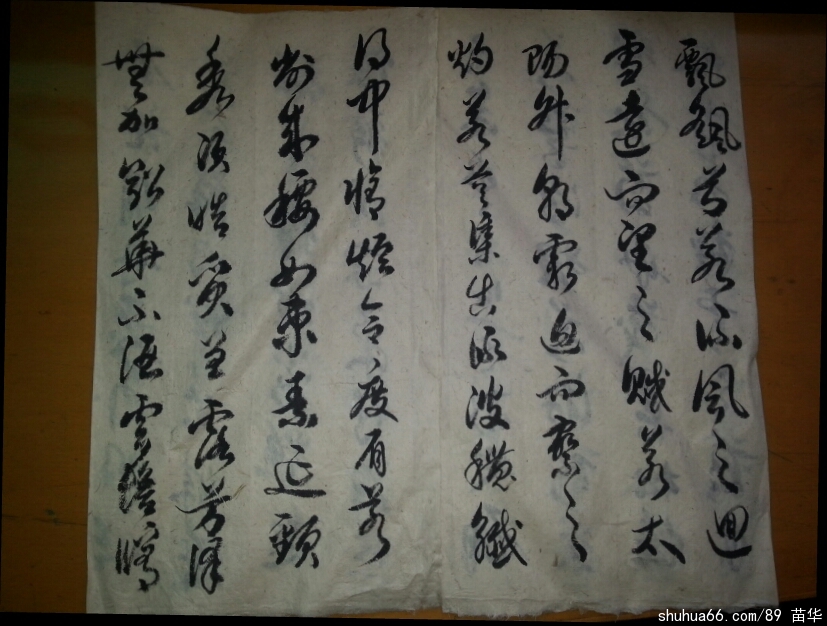 飄颻兮若流風之迴
雪遠而望之皦若太
陽升朝霞迫而察之
灼若芙蕖出淥波穠纖
得中脩短合度肩若
削成腰如束素延頸
秀項皓質呈露芳澤
無加鉛華不御雲髻
shuhua66.com/89 苗华